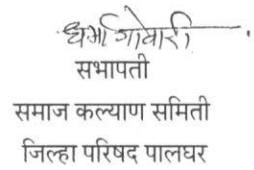 धर्मा गोवारी
सभापती
समाज कल्याण समिती
जिल्हा परिषद पालघर